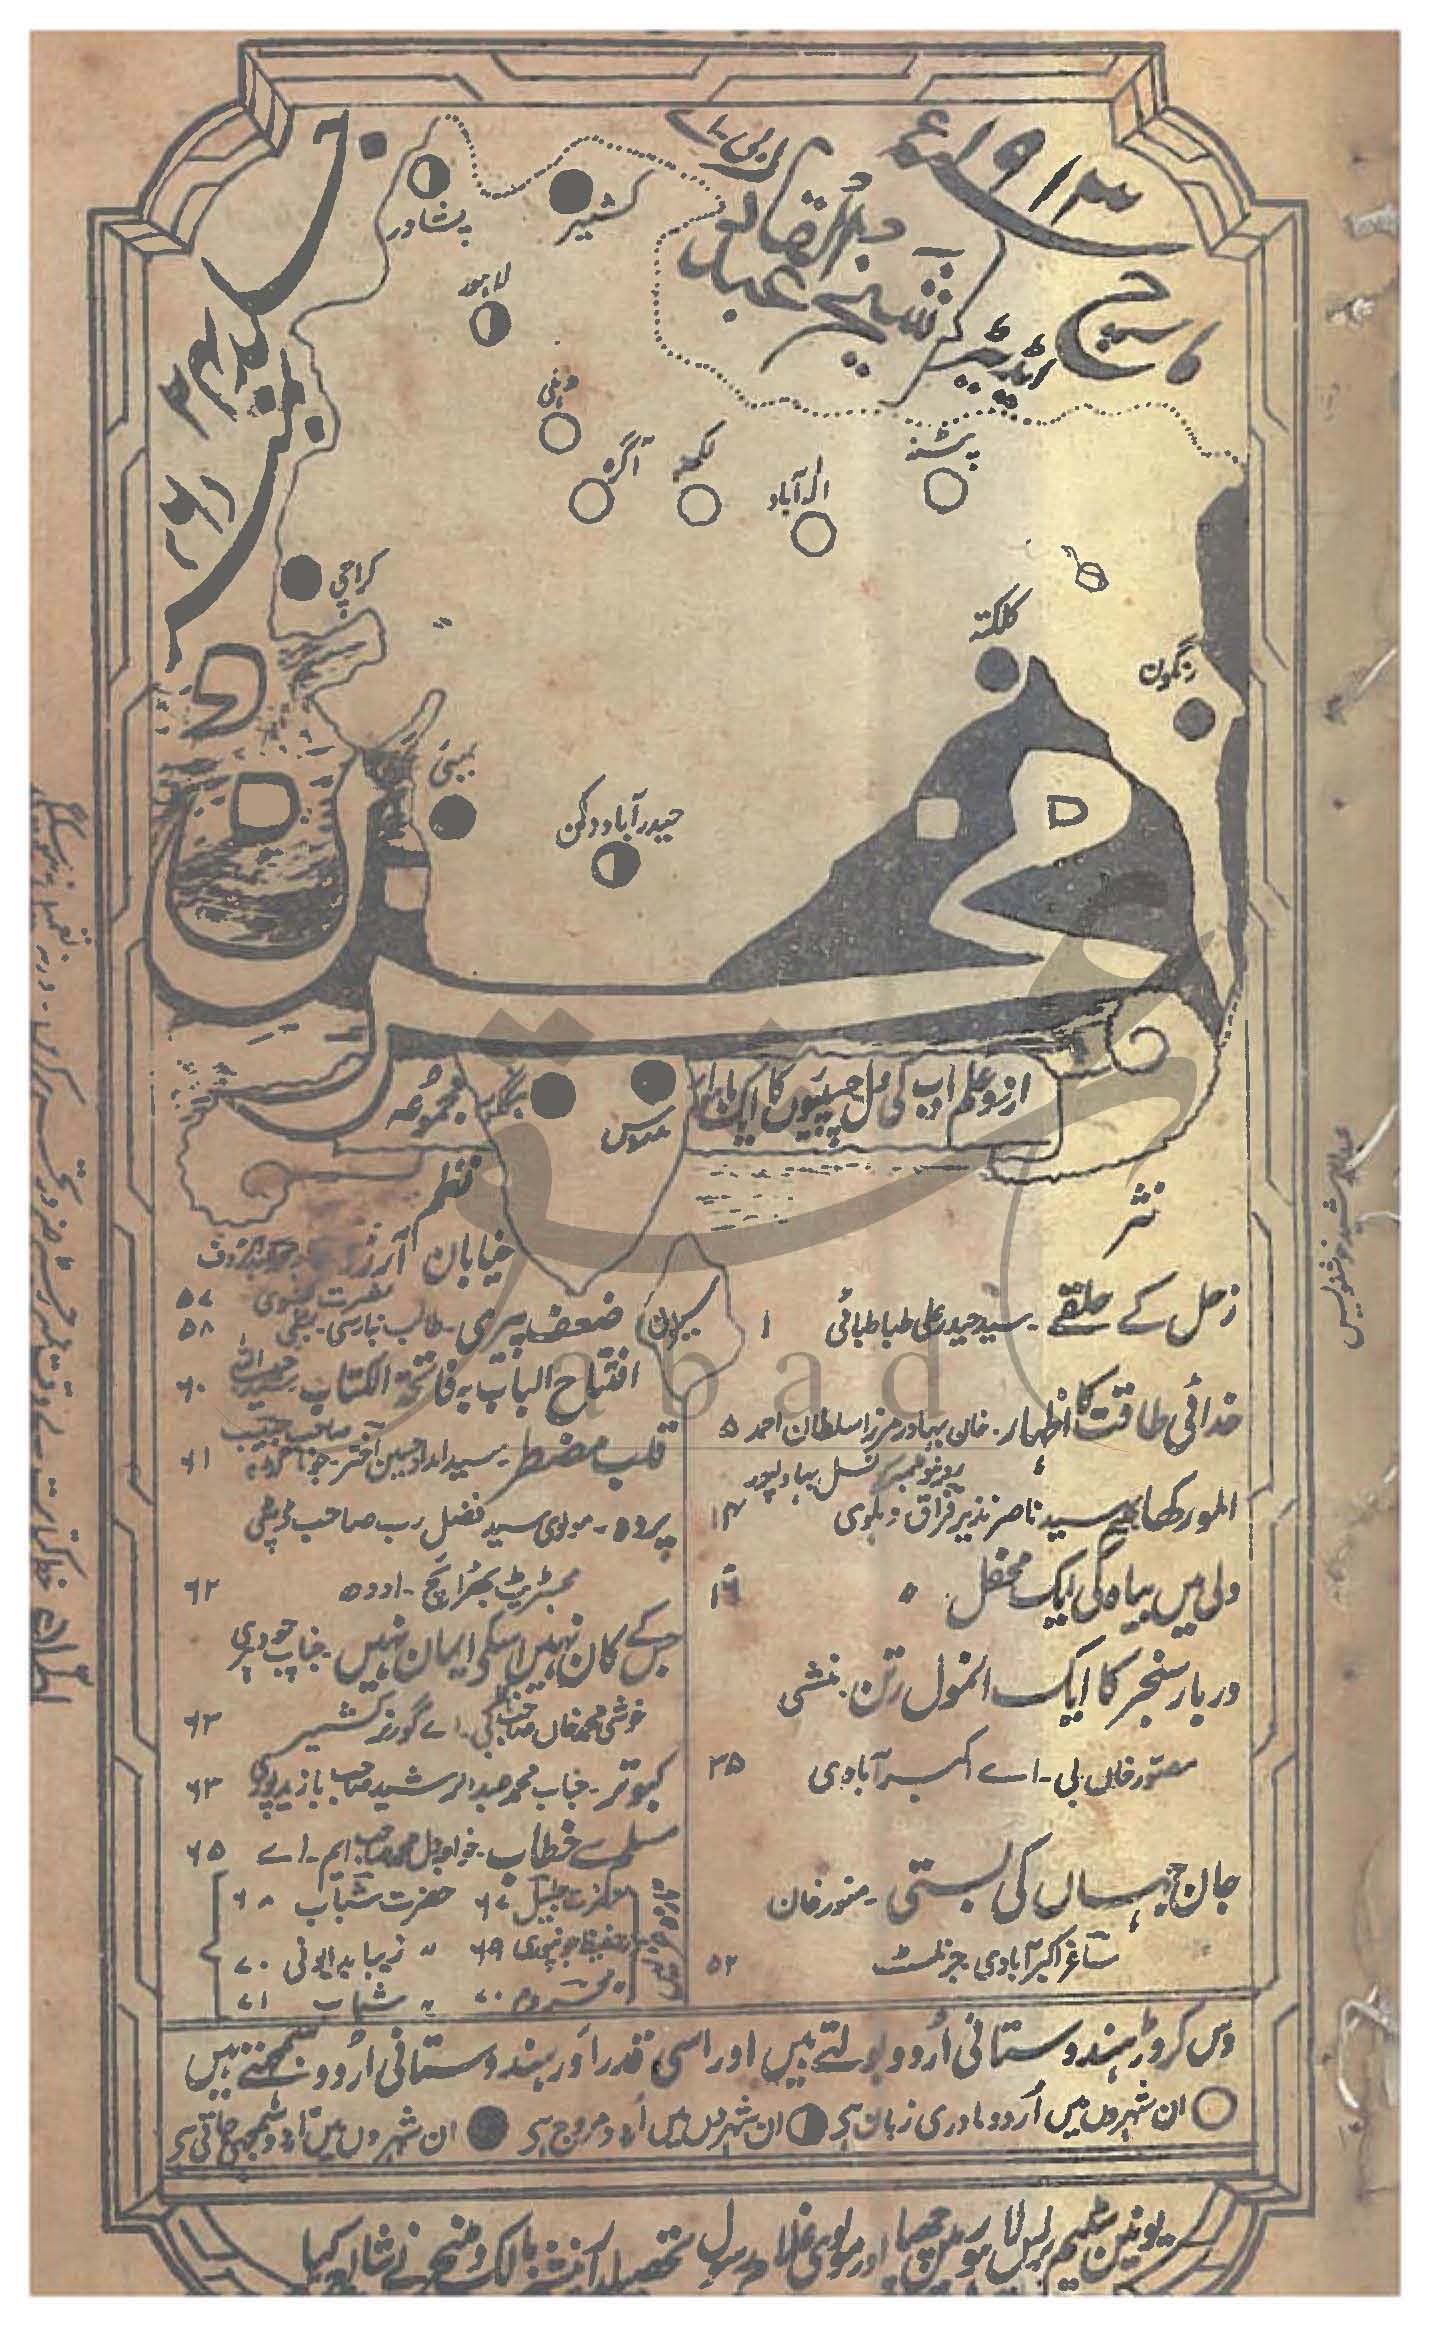 مارچ ۱۹۱۳ء
اڈیٹر
شیخ عبدالقادر
بی اے
پشاور
کشمیر
لاہور
دہلی
آگرہ
لکھنؤ
الہ آباد
پٹنہ
کراچی
کلکتہ
رنگون
بمبئی
حیدرآباد دکن
مخزن
اردو علم ادب کی دلچسپیوں کا ایک ماہوار
مجموعہ
بنگلور
مدراس
سیلون
نثر
زحل کے حلقے ۔ سید حیدر علی طباطبائی ۱
خدائی طاقت کا اظہار ۔ خان بہادر مرزا سلطان احمد ۵
ریونیو ممبر کونسل بہاولپور
سید ناصر نذیر فراق دہلوی ۱۴
دلی میں بیاہ کی ایک محفل ۱۶
دربار سنجر کا ایک انمول رتن ۔ منشی
منور خاں بی ۔ اے اکبرآبادی ۳۵
جان جہاں کی بستی ۔ منور خان
ساغر اکبرآبادی جرنلسٹ ۵۲
نظم
خیابان آرزو
۵۷
ضعف پیری ۔ طالب بنارسی ۔ بمبئی ۵۸
افتتاح الباب بہ فاتحۃ الکتاب ۶۰
قلب مضطر ۔ سید امداد حسین اختر ۶۱
پردہ ۔ مولوی سید فضل رب صاحب ڈپٹی
مجسٹریٹ بھڑائچ ۔ اودہ ۶۲
جس کے کان نہیں اسکی ایمان نہیں ۔ جناب چودہری
خوشی محمد خاں صاحب بی ۔ اے گورنر کشمیر ۶۳
کبوتر ۔ جناب محمد عبد الرشید صاحب بازیدپوری ۶۳
مسلم سے خطاب ۔ ایم ۔ اے ۶۵
حضرت جلیل ۶۷ حضرت شباب ۶۸
حفیظ جونپوری ۶۹ زیبا بدایونی ۷۰
۷۰ شہاب ۷۱
دس کروڑ ہندوستانی اُردو بولتے ہیں اور اسی قدر اَور ہندوستانی اُردو سمجھتے ہیں
ان شہروں میں اُردو مادری زبان ہے ان شہروں میں اُردو مروج ہے ان شہروں میں اُردو سمجھی جاتی ہے
یونین سٹیم پریس لاہور میں چھپا اور مولوی غلام رسول
عبدالرشید خوشنویس